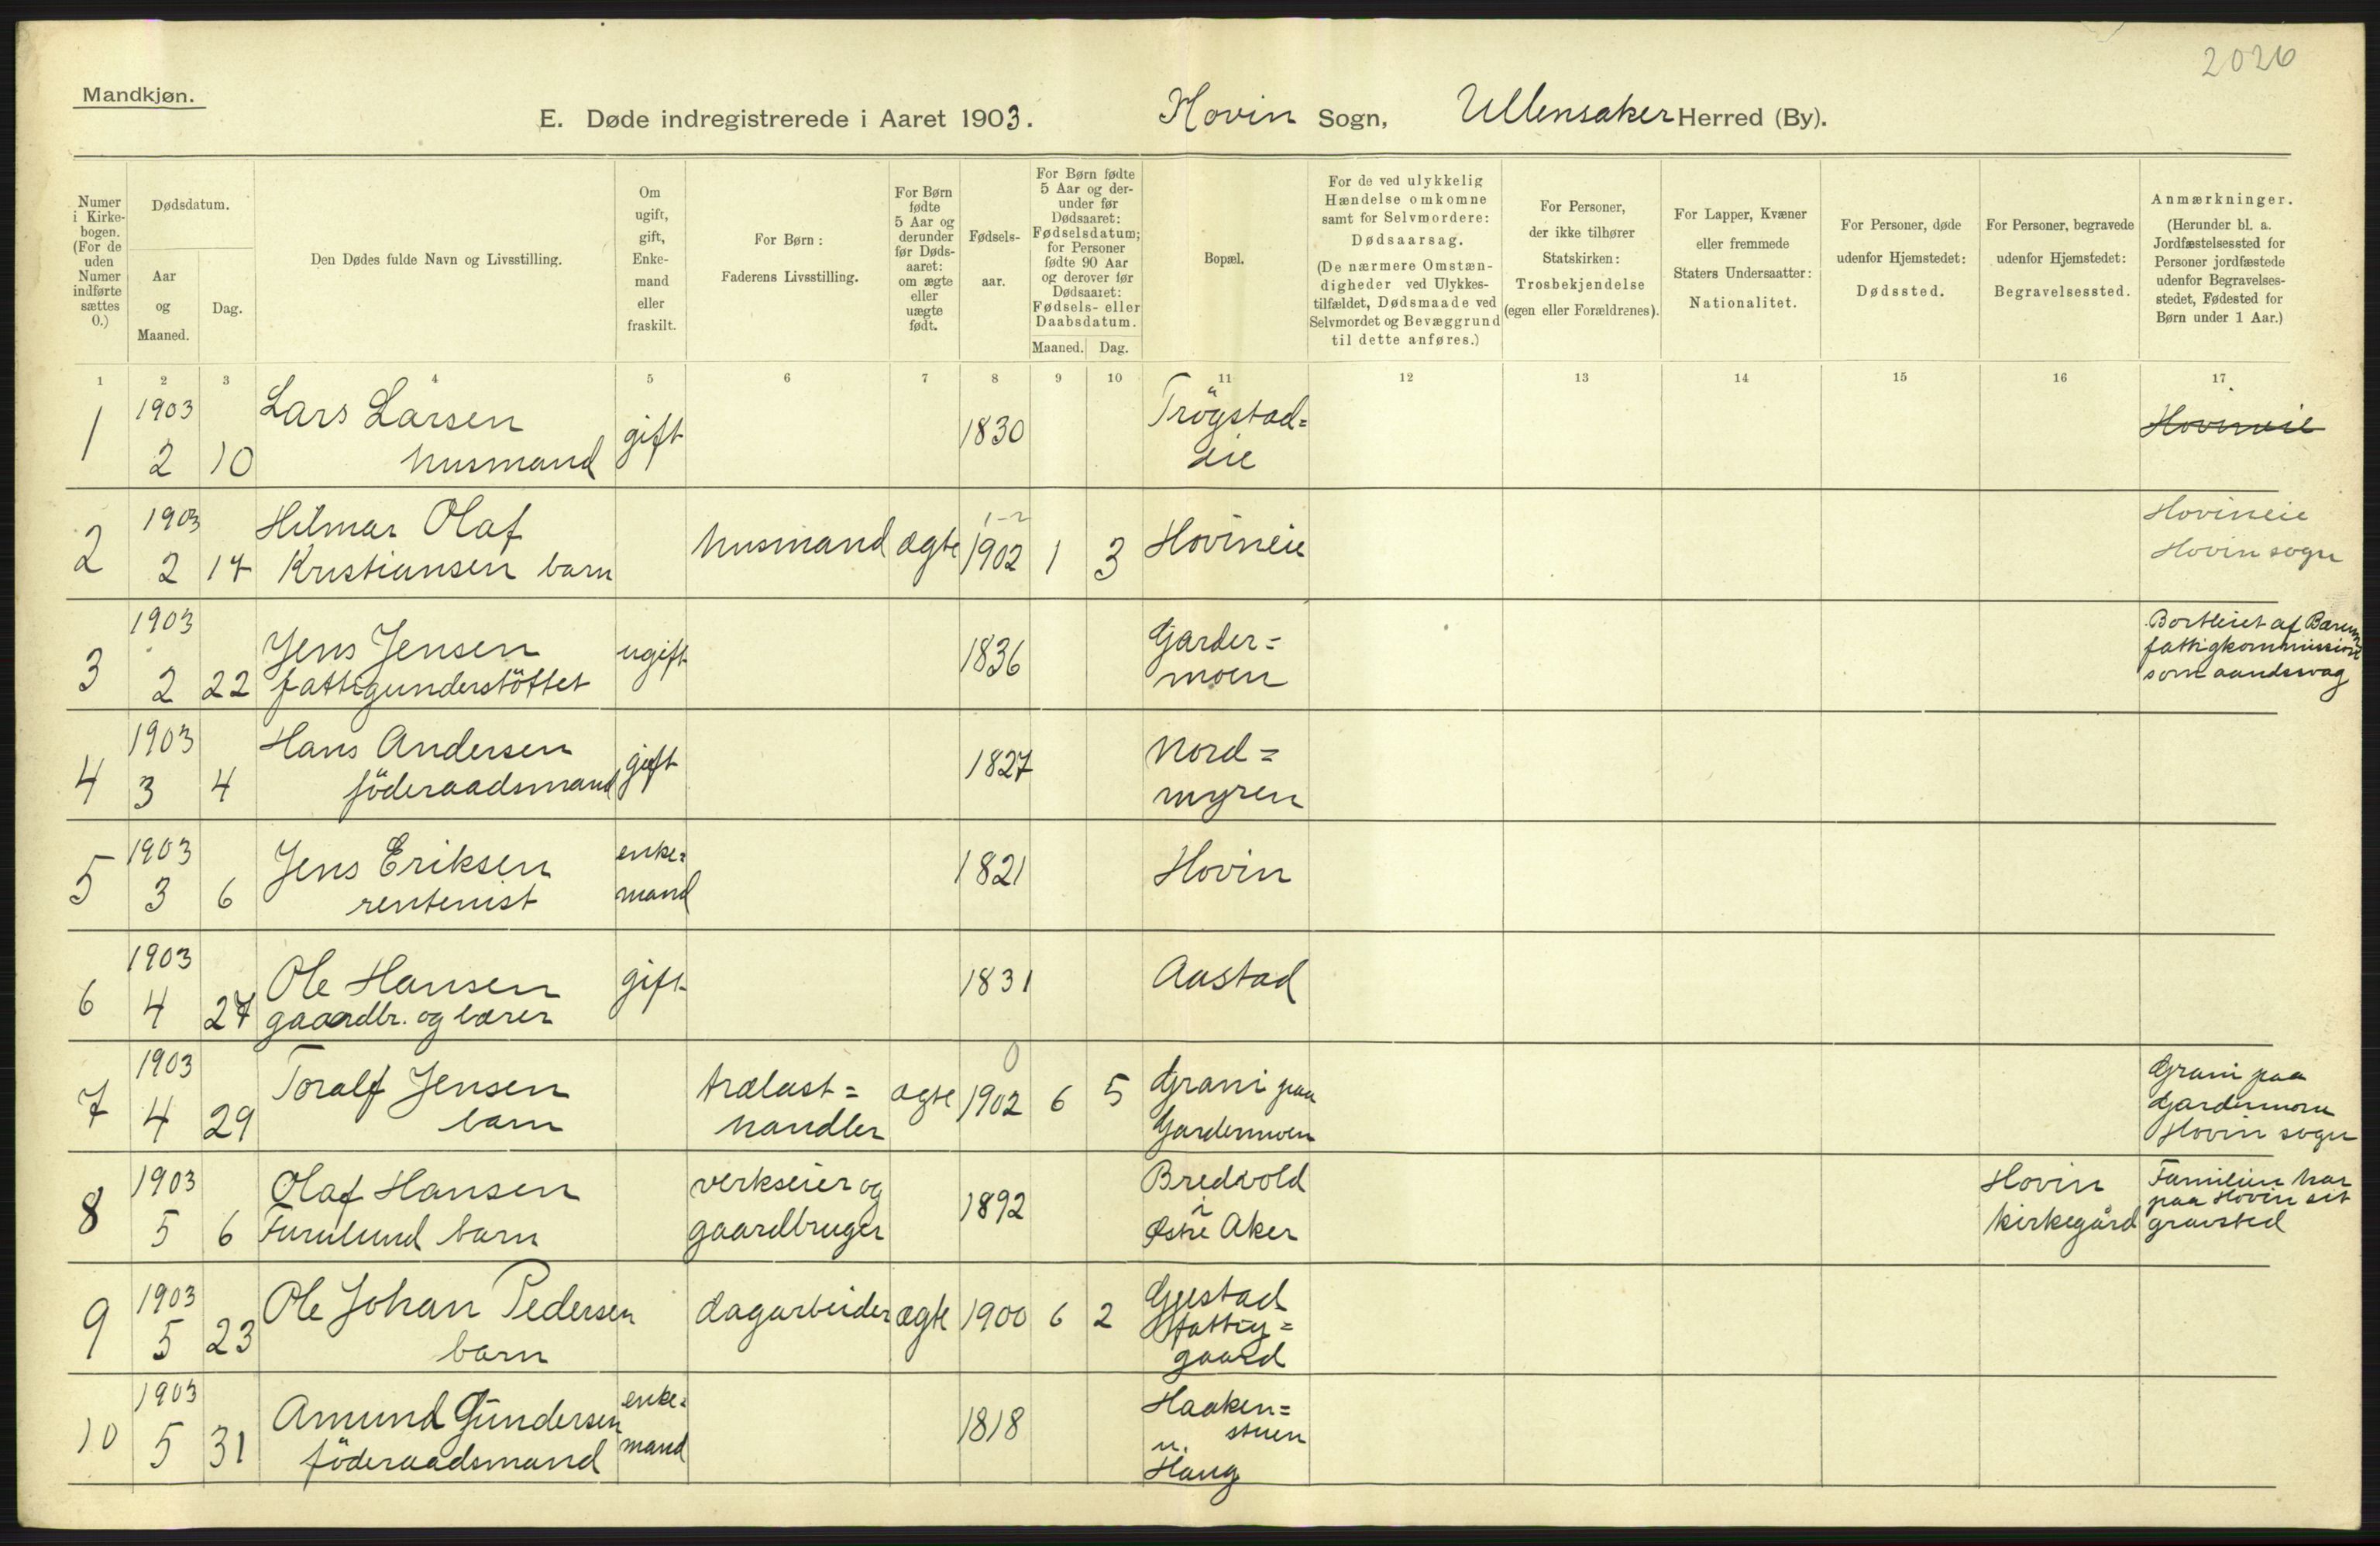 2026
Mandkjøn.
E. Døde indregistrerede i Aaret 1903. Hovin Sogn, Ullensaker Herred (By).
Numer i Kirke-bogen. (For de uden Numer indførte sættes 0.)
Dødsdatum.
Aar og Maaned.
Dag.
Den Dødes fulde Navn og Livsstilling.
Om ugift, gift, Enke-mand eller fraskilt.
For Børn: Faderens Livsstilling.
For Børn fødte 5 Aar og derunder før Døds-aaret: om ægte eller uægte født.
Fødsels-aar.
For Børn fødte 5 Aar og der-under før Dødsaaret: Fødselsdatum; for Personer fødte 90 Aar og derover før Dødsaaret: Fødsels- eller Daabsdatum.
Maaned. Dag.
Bopæl.
For de ved ulykkelig Hændelse omkomne samt for Selvmordere: Dødsaarsag. (De nærmere Omstæn-digheder ved Ulykkes-tilfældet, Dødsmaade ved Selvmordet og Bevæggrund til dette anføres.)
For Personer, der ikke tilhører Statskirken: Trosbekjendelse (egen eller Forældrenes).
For Lapper, Kvæner eller fremmede Staters Undersaatter: Nationalitet.
For Personer, døde udenfor Hjemstedet: Dødssted.
For Personer, begravede udenfor Hjemstedet: Begravelsessted.
Anmærkninger. (Herunder bl. a. Jordfæstelsessted for Personer jordfæstede udenfor Begravelses-stedet, Fødested for Børn under 1 Aar.)
1 2 3 4 5 6 7 8 9 10 11 12 13 14 15 16 17
1 1903 2 10 Lars Larsen husmand gift 1830 Trögstad= eie Hovineie
2 1903 2 17 Hilmar Olaf Kristiansen barn husmand ægte 1902 1 3 Hovineie Hovineie Hovin sogn
3 1903 2 22 Jens Jensen fattigunderstöttet ugift 1836 Garder= moen Bortleiet af Bærum fattigkommission som aandssvag
4 1903 3 4 Hans Andersen föderaadsmand gift 1827 Nord= myren
5 1903 3 6 Jens Eriksen rentenist enke= mand 1821 Hovin
6 1903 4 27 Ole Hansen gaardbr. og lærer gift 1831 Aastad
7 1903 4 29 Toralf Jensen barn trælast= handler ægte 0 1902 6 5 Grani paa Gardermoen Grani paa Gardermoen Hovin sogn
8 1903 5 6 Olaf Hansen Furulund barn verkseier og gaardbruger 1892 Bredvold i Østre Aker Hovin kirkegård Familien har paa Hovin sit gravsted
9 1903 5 23 Ole Johan Pedersen barn dagarbeider ægte 1900 6 2 Gjestad fattig= gaard
10 1903 5 31 Amund Gundersen föderaadsmand enke= mand 1818 Haaken= stuen u. Haug